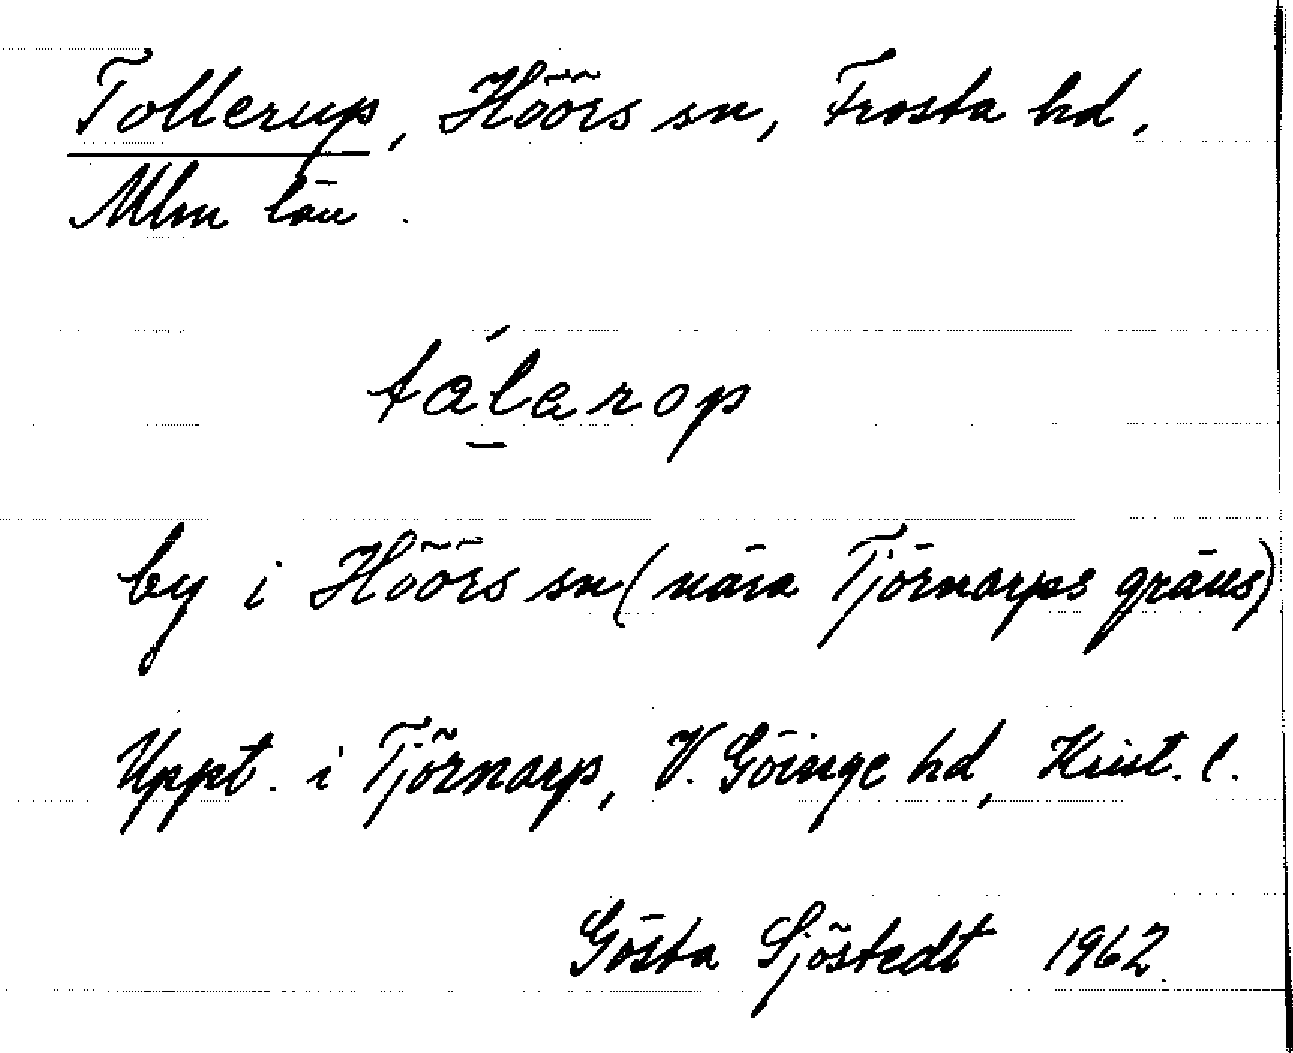 Tollerup, Höörs sn, Frosta hd,
Mlm län.
tálarop
by i Höörs sn (nära Tjörnarps gräns)
Uppt. i Tjörnarp, V. Göinge hd, Krist. l.
Gösta Sjöstedt 1962